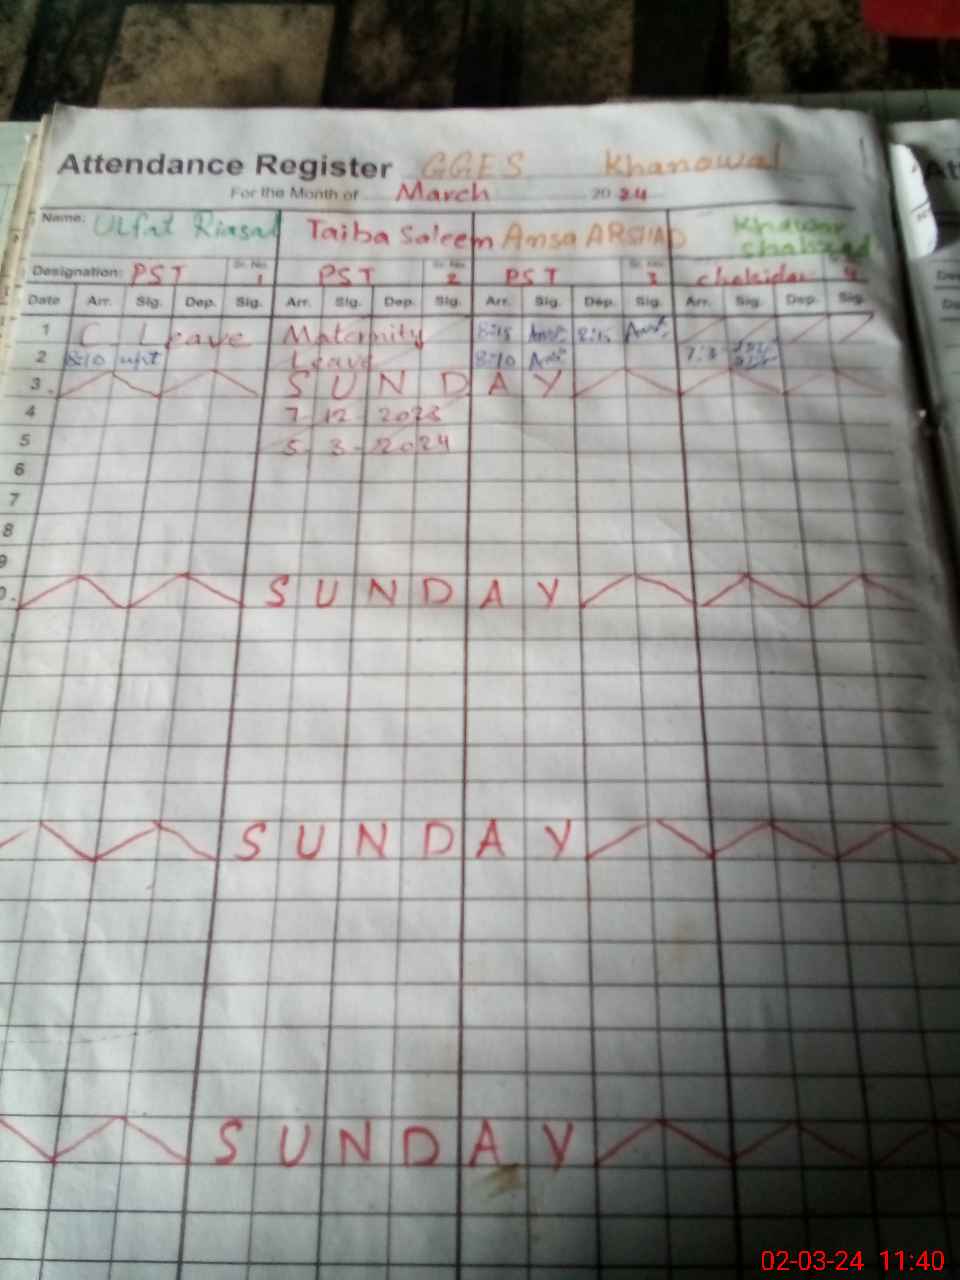 Attendance Register GGES Khanowal
For the Month of March 2024
Name: Ulfat Riasat Taiba Saleem Ansa ARSHAD Khawar Shahzad
Designation: PST Sr. No. 1 PST Sr. No. 2 PST Sr. No. 3 Chokidar 4
Date Arr. Sig. Dep. Sig. Arr. Sig. Dep. Sig. Arr. Sig. Dep. Sig. Arr. Sig. Dep. Sig.
1 C Leave Maternity 8:15
2 8:10 Leave 8:10
3 SUNDAY
4 7-12-2023
5 5-3-2024
6
7
8
9
SUNDAY
SUNDAY
SUNDAY
02-03-24 11:40